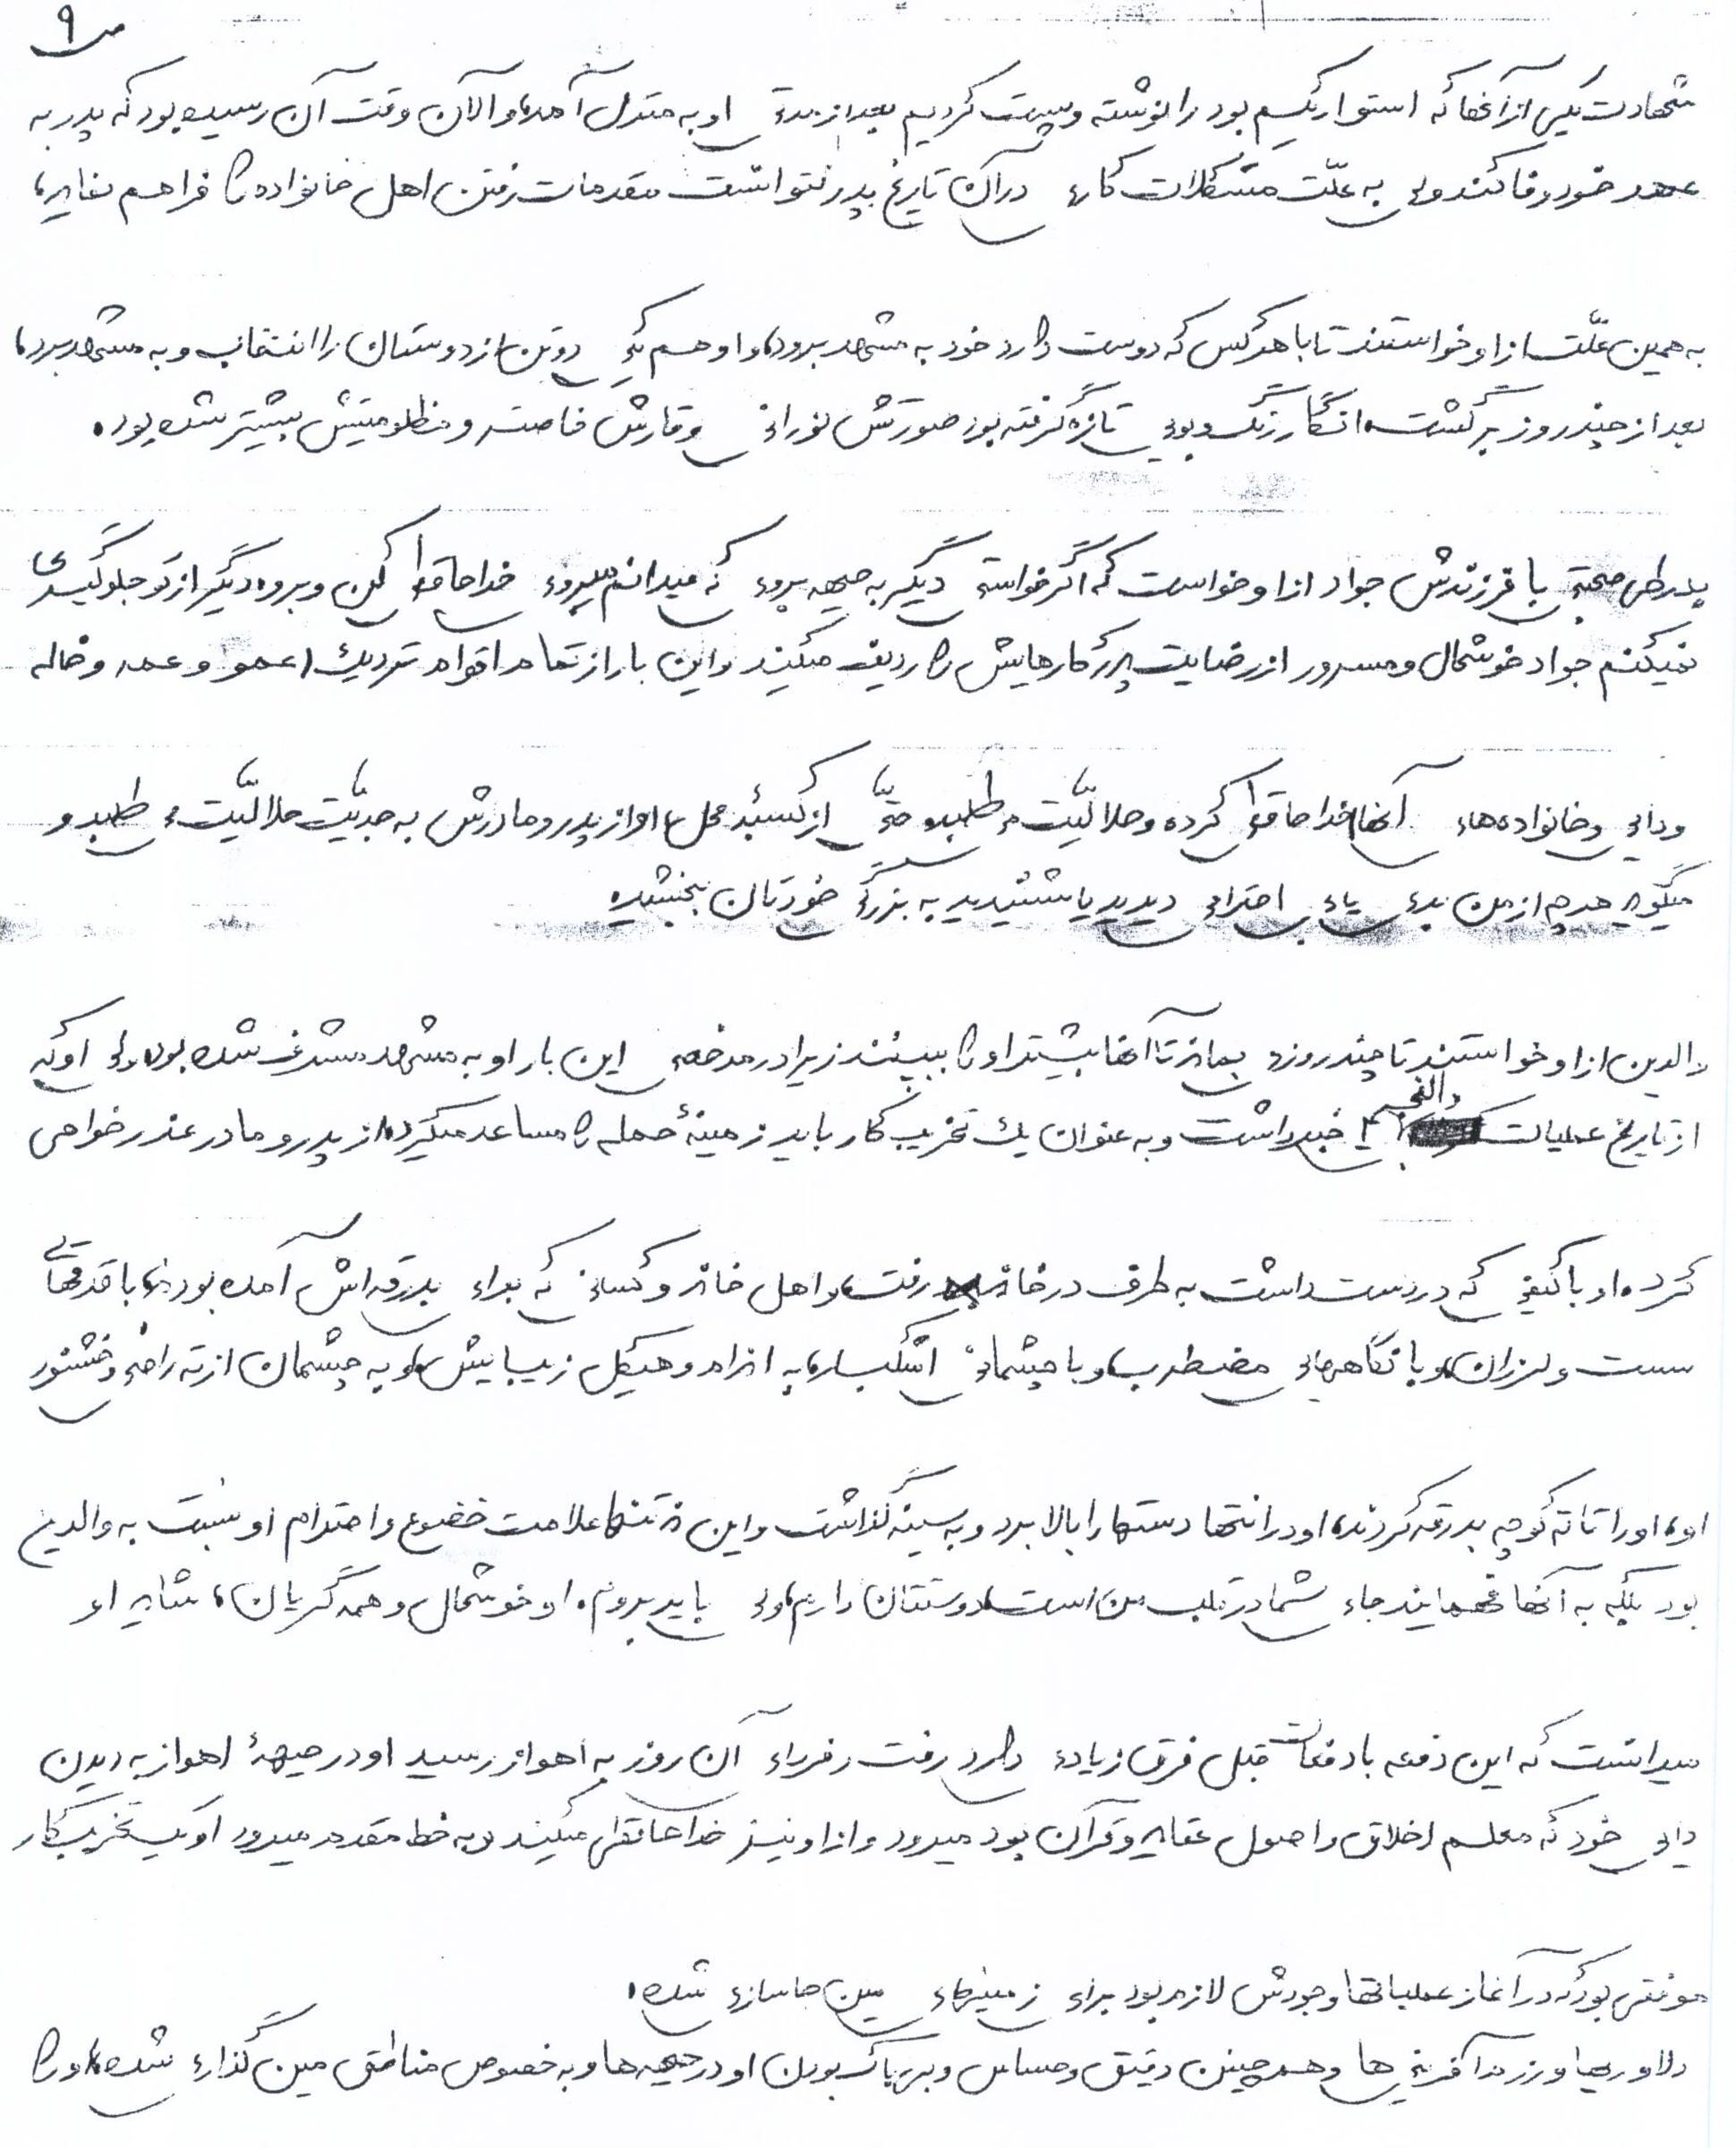 ص ۹
شهادت یکی از آنها که استوار یکم بود را نوشته و پست کردیم بعد از مدتی او به منزل آمد، و الآن وقت آن رسیده بود که پدر به
عهد خود وفا کند ولی به علّت مشکلات کاری در آن تاریخ پدر نتوانست مقدمات رفتن اهل خانواده را فراهم نماید،
به همین علّت از او خواستند تا با هر کس که دوست دارد خود به مشهد برود، و او هم یکی دو تن از دوستان را انتخاب و به مشهد برد،
بعد از چند روز برگشت، انگار رنگ و بویی تازه گرفته بود صورتش نورانی وقارش خاصتر و مظلومیتش بیشتر شده بود.
پدر طی صحبتی با فرزندش جواد از او خواست که اگر خواستی دیگر به جبهه بروی که میدانم میروی خداحافظی کن و برو، دیگر از تو جلوگیری
نمیکنم جواد خوشحال و مسرور از رضایت پدر کارهایش را ردیف میکند و این بار از تمام اقوام نزدیک (عمو و عمه و خاله
و دایی و خانواده‌های آنها) خداحافظی کرده و حلالیّت می‌طلبد و حتّی از کسبهٔ محل، او از پدر و مادرش به جدیّت حلالیّت می طلبد و
میگوید هر چه از من بدی یا بی احترامی دیدید یا شنیدید به بزرگی خودتان ببخشید
والدین از او خواستند تا چند روزی بماند تا آنها بیشتر او را ببینند زیرا در مرخصی این بار او به مشهد مشرف شده بود، ولی او که
از تاریخ عملیات والفجر ۴ خبر داشت و به عنوان یک تخریب کار باید زمینهٔ حمله را مساعد میکرد، از پدر و مادر عذر خواهی
کرد. او با کیفی که در دست داشت به طرف در خانه رفت، و اهل خانه و کسانی که برای بدرقه اش آمده بودند، با قدمهائی
سست و لرزان، و با نگاههایی مضطرب، و با چشمانی اشکبار، به اندام و هیکل زیبایش، و به چشمان از ته راضی و خشنود
او، او را تا ته کوچه بدرقه کردند، او در انتها دستها را بالا برد و به سینه گذاشت و این نه تنها علامت خضوع و احترام او نسبت به والدین
بود بلکه به آنها فهمانید جای شما در قلب من است، دوستتان دارم، ولی باید بروم. او خوشحال و همه گریان، شاید او
میدانست که این دفعه با دفعات قبل فرق زیادی دارد رفت و فردای آن روز به اهواز رسید او در جبههٔ اهواز به دیدن
دایی خود که معلم اخلاق و اصول عقاید و قرآن بود میرود و از او نیز خداحافظی میکند و به خط مقدم میرود او یک تخریب کار
موفقی بود که در آغاز عملیاتها وجودش لازم بود برای زمینهای مین خاسازی شده،
دلاوریها و رزم آفرینی ها و همچنین دقیق و حساس و بی باک بودن او در جبهه ها و به خصوص مناطق مین گذاری شده، او را